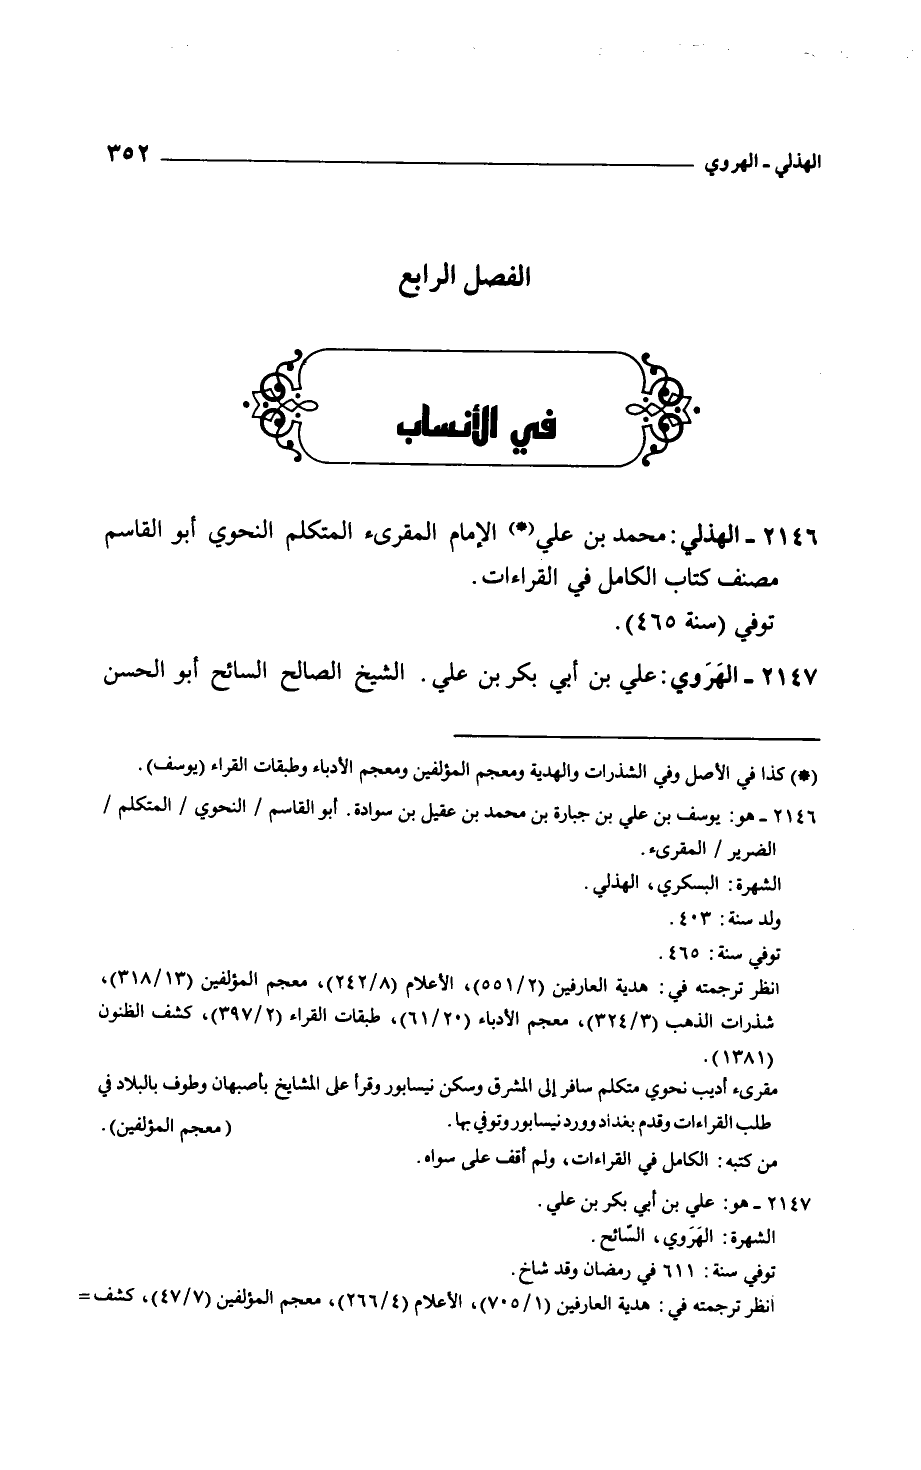 الهذلي - الهروي ٣٥٢
الفصل الرابع
في الأنساب
٢١٤٦ - الهذلي: محمد بن علي(*) الإمام المقرىء المتكلم النحوي أبو القاسم
مصنف كتاب الكامل في القراءات.
توفي (سنة ٤٦٥).
٢١٤٧ - الهَرَوي: علي بن أبي بكر بن علي. الشيخ الصالح السائح أبو الحسن
(*) كذا في الأصل وفي الشذرات والهدية ومعجم المؤلفين ومعجم الأدباء وطبقات القراء (يوسف).
٢١٤٦ - هو: يوسف بن علي بن جبارة بن محمد بن عقيل بن سوادة. أبو القاسم / النحوي / المتكلم /
الضرير / المقرىء.
الشهرة: البسكري، الهذلي.
ولد سنة: ٤٠٣.
توفي سنة: ٤٦٥.
انظر ترجمته في: هدية العارفين (٥٥١/٢)، الأعلام (٢٤٢/٨)، معجم المؤلفين (٣١٨/١٣)،
شذرات الذهب (٣٢٤/٣)، معجم الأدباء (٦١/٢٠)، طبقات القراء (٣٩٧/٢)، كشف الظنون
(١٣٨١).
مقرىء أديب نحوي متكلم سافر إلى المشرق وسكن نيسابور وقرأ على المشايخ بأصبهان وطوف بالبلاد في
طلب القراءات وقدم بغداد وورد نيسابور وتوفي بها. (معجم المؤلفين).
من كتبه: الكامل في القراءات، ولم أقف على سواه.
٢١٤٧ - هو: علي بن أبي بكر بن علي.
الشهرة: الهَرَوي، السّائح.
توفي سنة: ٦١١ في رمضان وقد شاخ.
أنظر ترجمته في: هدية العارفين (٧٠٥/١)، الأعلام (٢٦٦/٤)، معجم المؤلفين (٤٧/٧)، كشف =